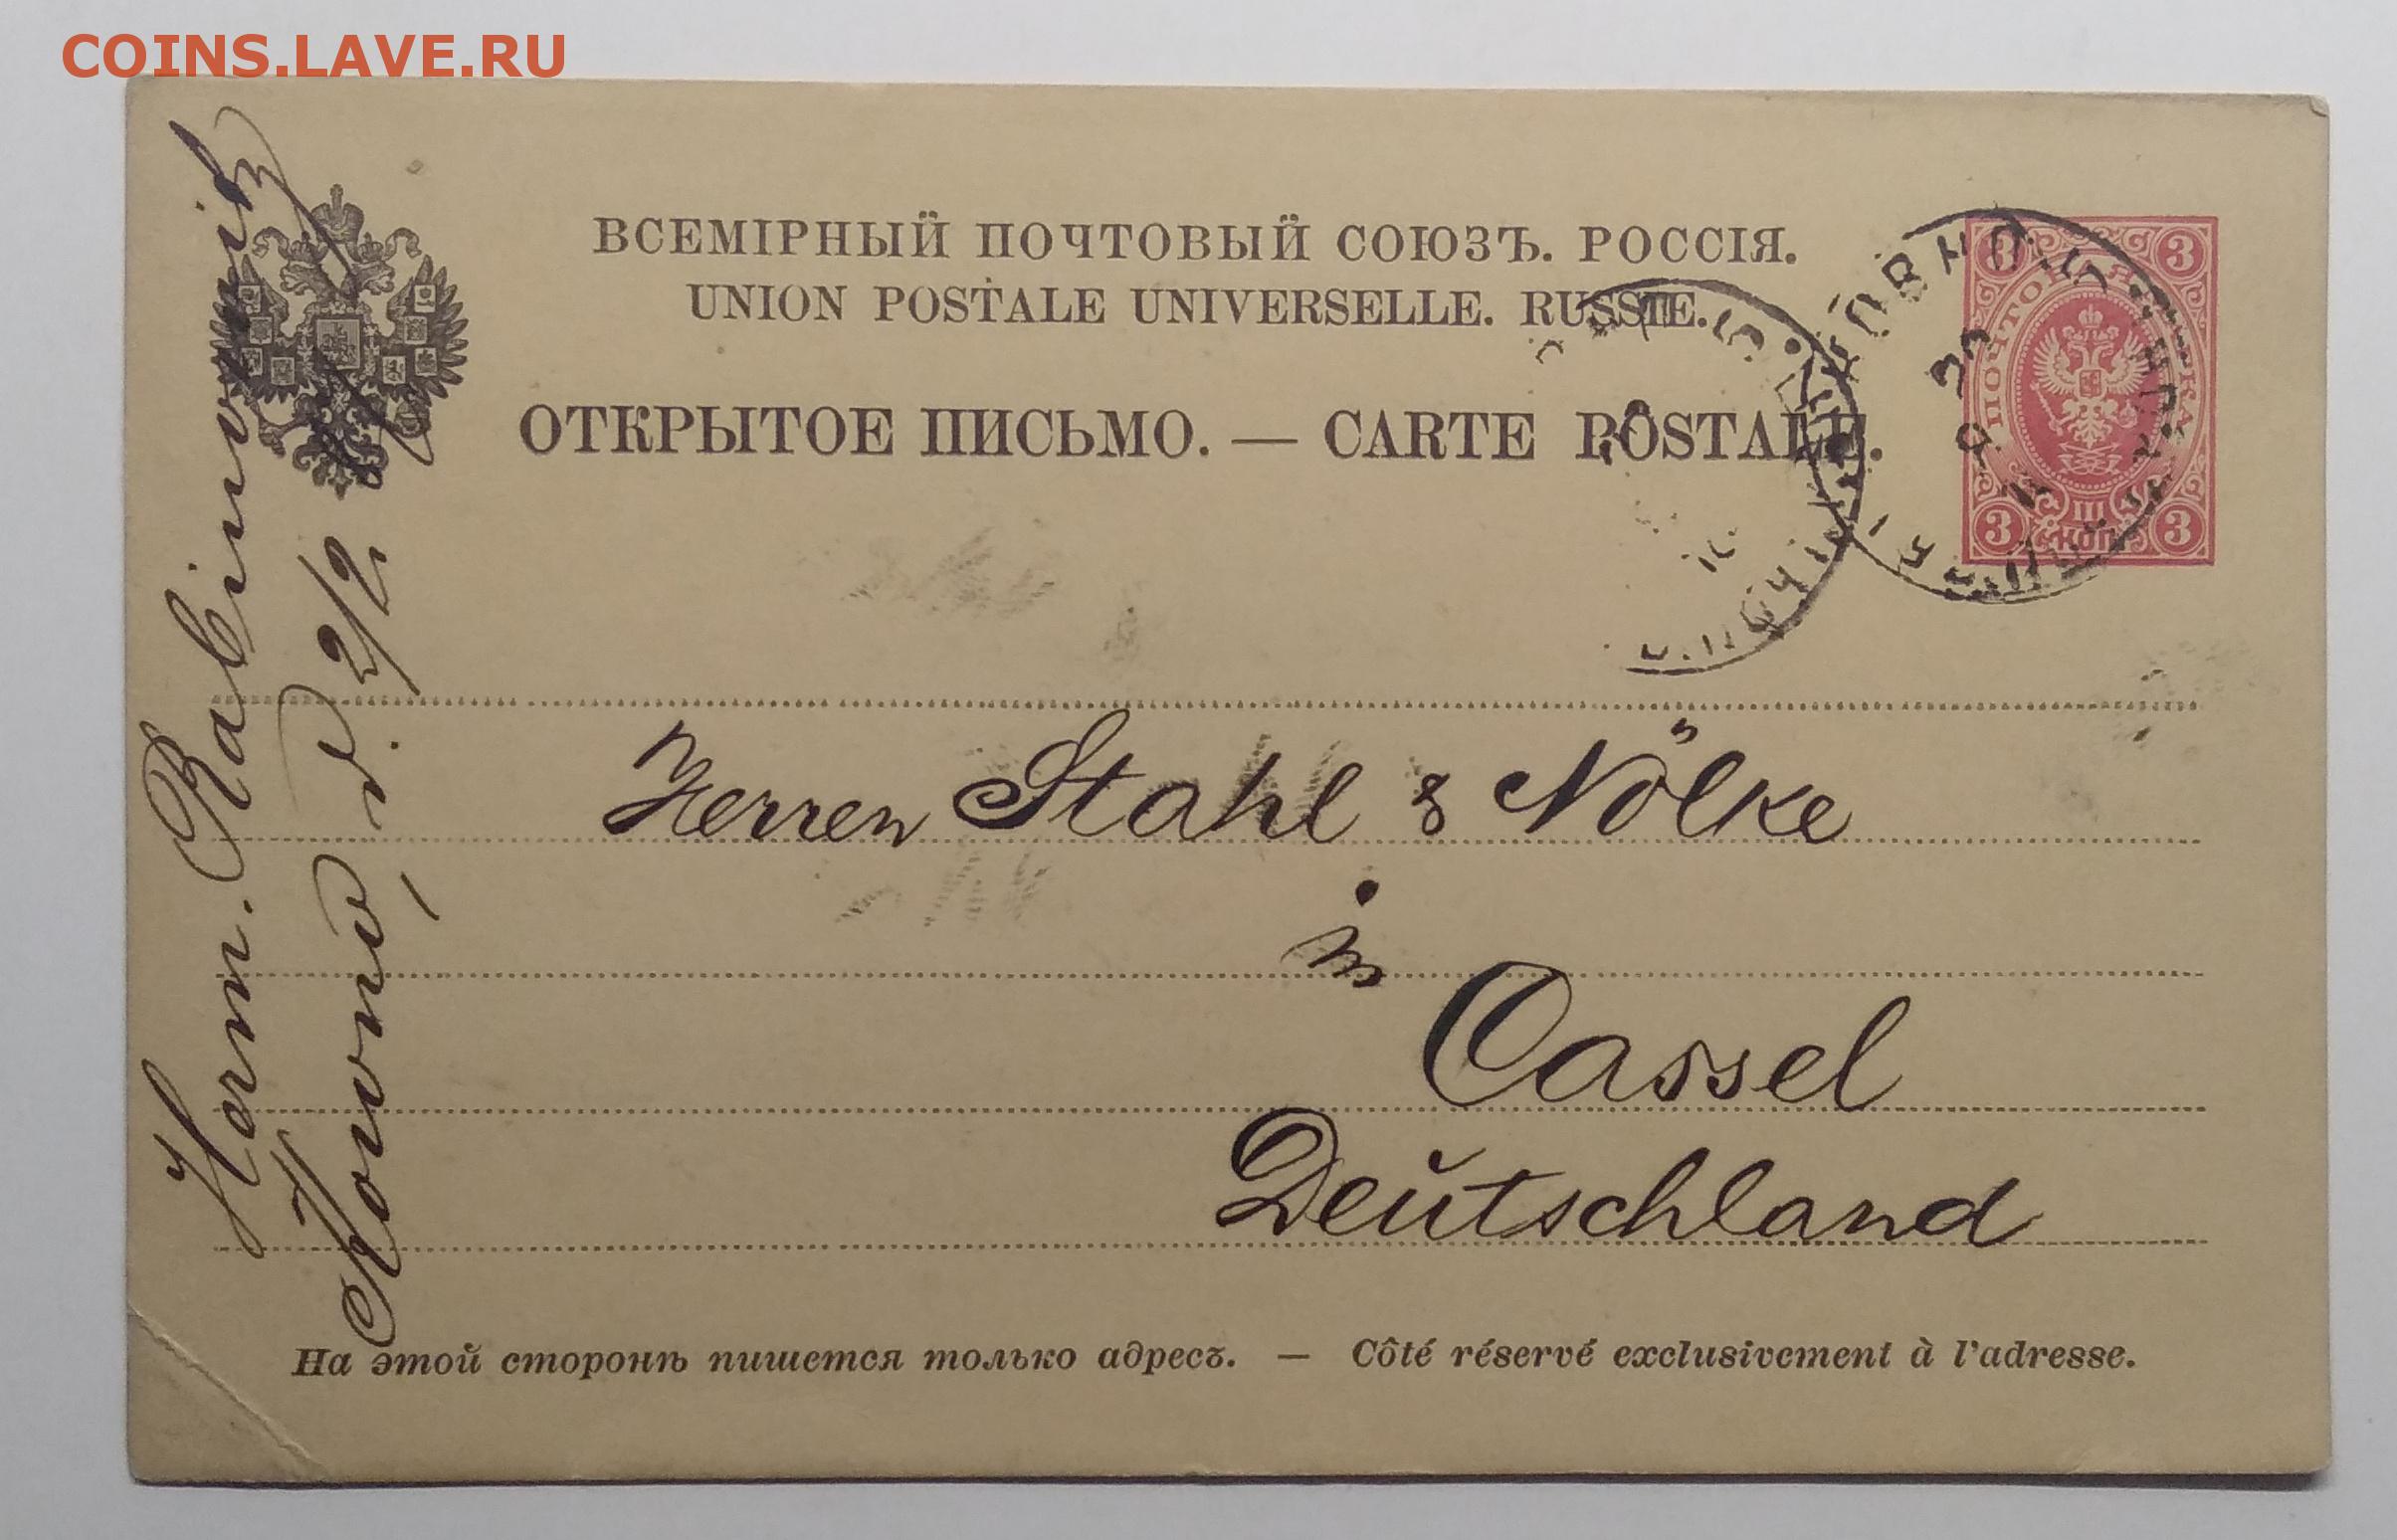 COINS.LAVE.RU
ВСЕМІРНЫЙ ПОЧТОВЫЙ СОЮЗЪ. РОССІЯ.
UNION POSTALE UNIVERSELLE. RUSSIE.
ОТКРЫТОЕ ПИСЬМО. — CARTE POSTALE.
ПОЧТОВАЯ МАРКА
3 3
III
3 КОП 3
Herm. Rabinowitz
Kowno, d. 2/2
Herren Stahl & Nölke
in
Cassel
Deutschland
На этой сторонѣ пишется только адресъ. — Côté réservé exclusivement à l'adresse.